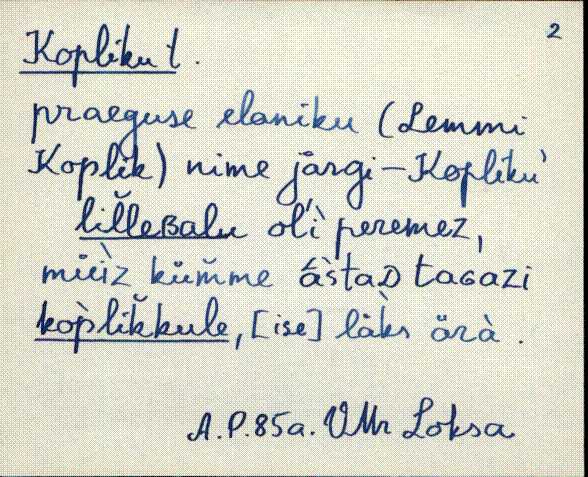 2
Kopliku t.
praeguse elaniku (Lemmi
Koplik) nime järgi – Kopliku
lilleʙalu oli peremez,
müiz kümme ästaᴅ taɢazi
kòplikkule, [ise] läks ärà.
A.P. 85a. VMr Loksa